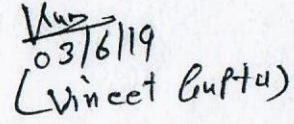 03/6/19
(Vineet Gupta)